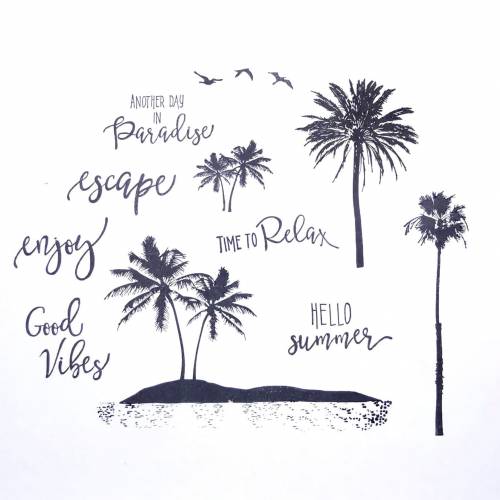 ANOTHER DAY
IN
Paradise
escape
enjoy
TIME TO Relax
Good
Vibes
HELLO
summer